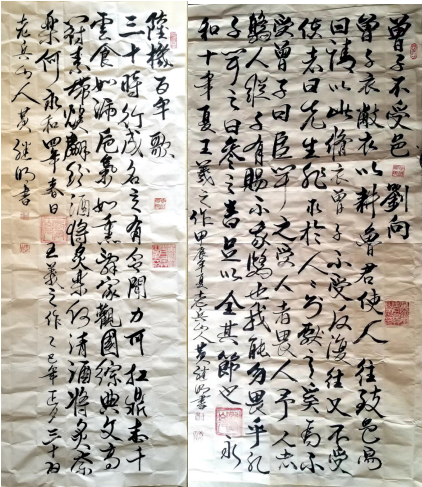 曾子不受邑 劉向
曾子衣敝衣以耕魯君使人往致邑焉
曰請以此修衣曾子不受反復往又不受
使者曰先生非求於人人則獻之奚為不
受曾子曰臣聞之受人者畏人予人者
驕人縱子有賜不我驕也我能勿畏乎孔
子聞之曰參之言足以全其節也 永
和十年夏王羲之作甲辰年夏老兵山人黄继明書
陸機百年歌
三十時行成名立有令聞力可扛鼎志干
雲食如漏卮氣如熏辞家觀國綜典文高
冠素帶煥翩紛酒將炙奈何清酒將炙奈
樂何 永和四年春日 王羲之作 乙巳年正月三十日
老兵山人黄继明書